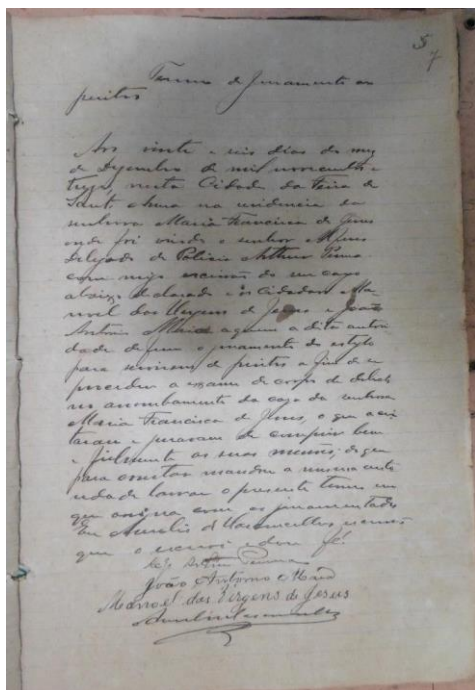 5
7
Termo de Juramento aos
peritos
Aos vinte e seis dias do mez
de Dezembro de mil novecentos e
treze, nesta Cidade da Feira de
Sant'Anna na residencia da
senhora Maria Francisca de Jesus
onde foi vindo o senhor
Delegado de Policia Arthur
commigo escrivão do seu cargo
abaixo declarado e os Cidadãos Ma-
noel das Virgens de Jesus e João
Antonio Maia a quem a dita autori-
dade deferiu o juramento do estylo
para servirem de peritos a fim de se
proceder a exame de corpo de delicto
no arrombamento da casa da senhora
Maria Francisca de Jesus, o que acei-
taram e juraram de cumprir bem
e fielmente as suas missões; do que
para constar mandou a mesma auto-
ridade lavrar o presente termo em
que assigna com os juramentados
Eu Aurelio de Vasconcellos escrivão
que o escrevi e dou fé.
Arthur
João Antonio Maia
Manoel das Virgens de Jesus